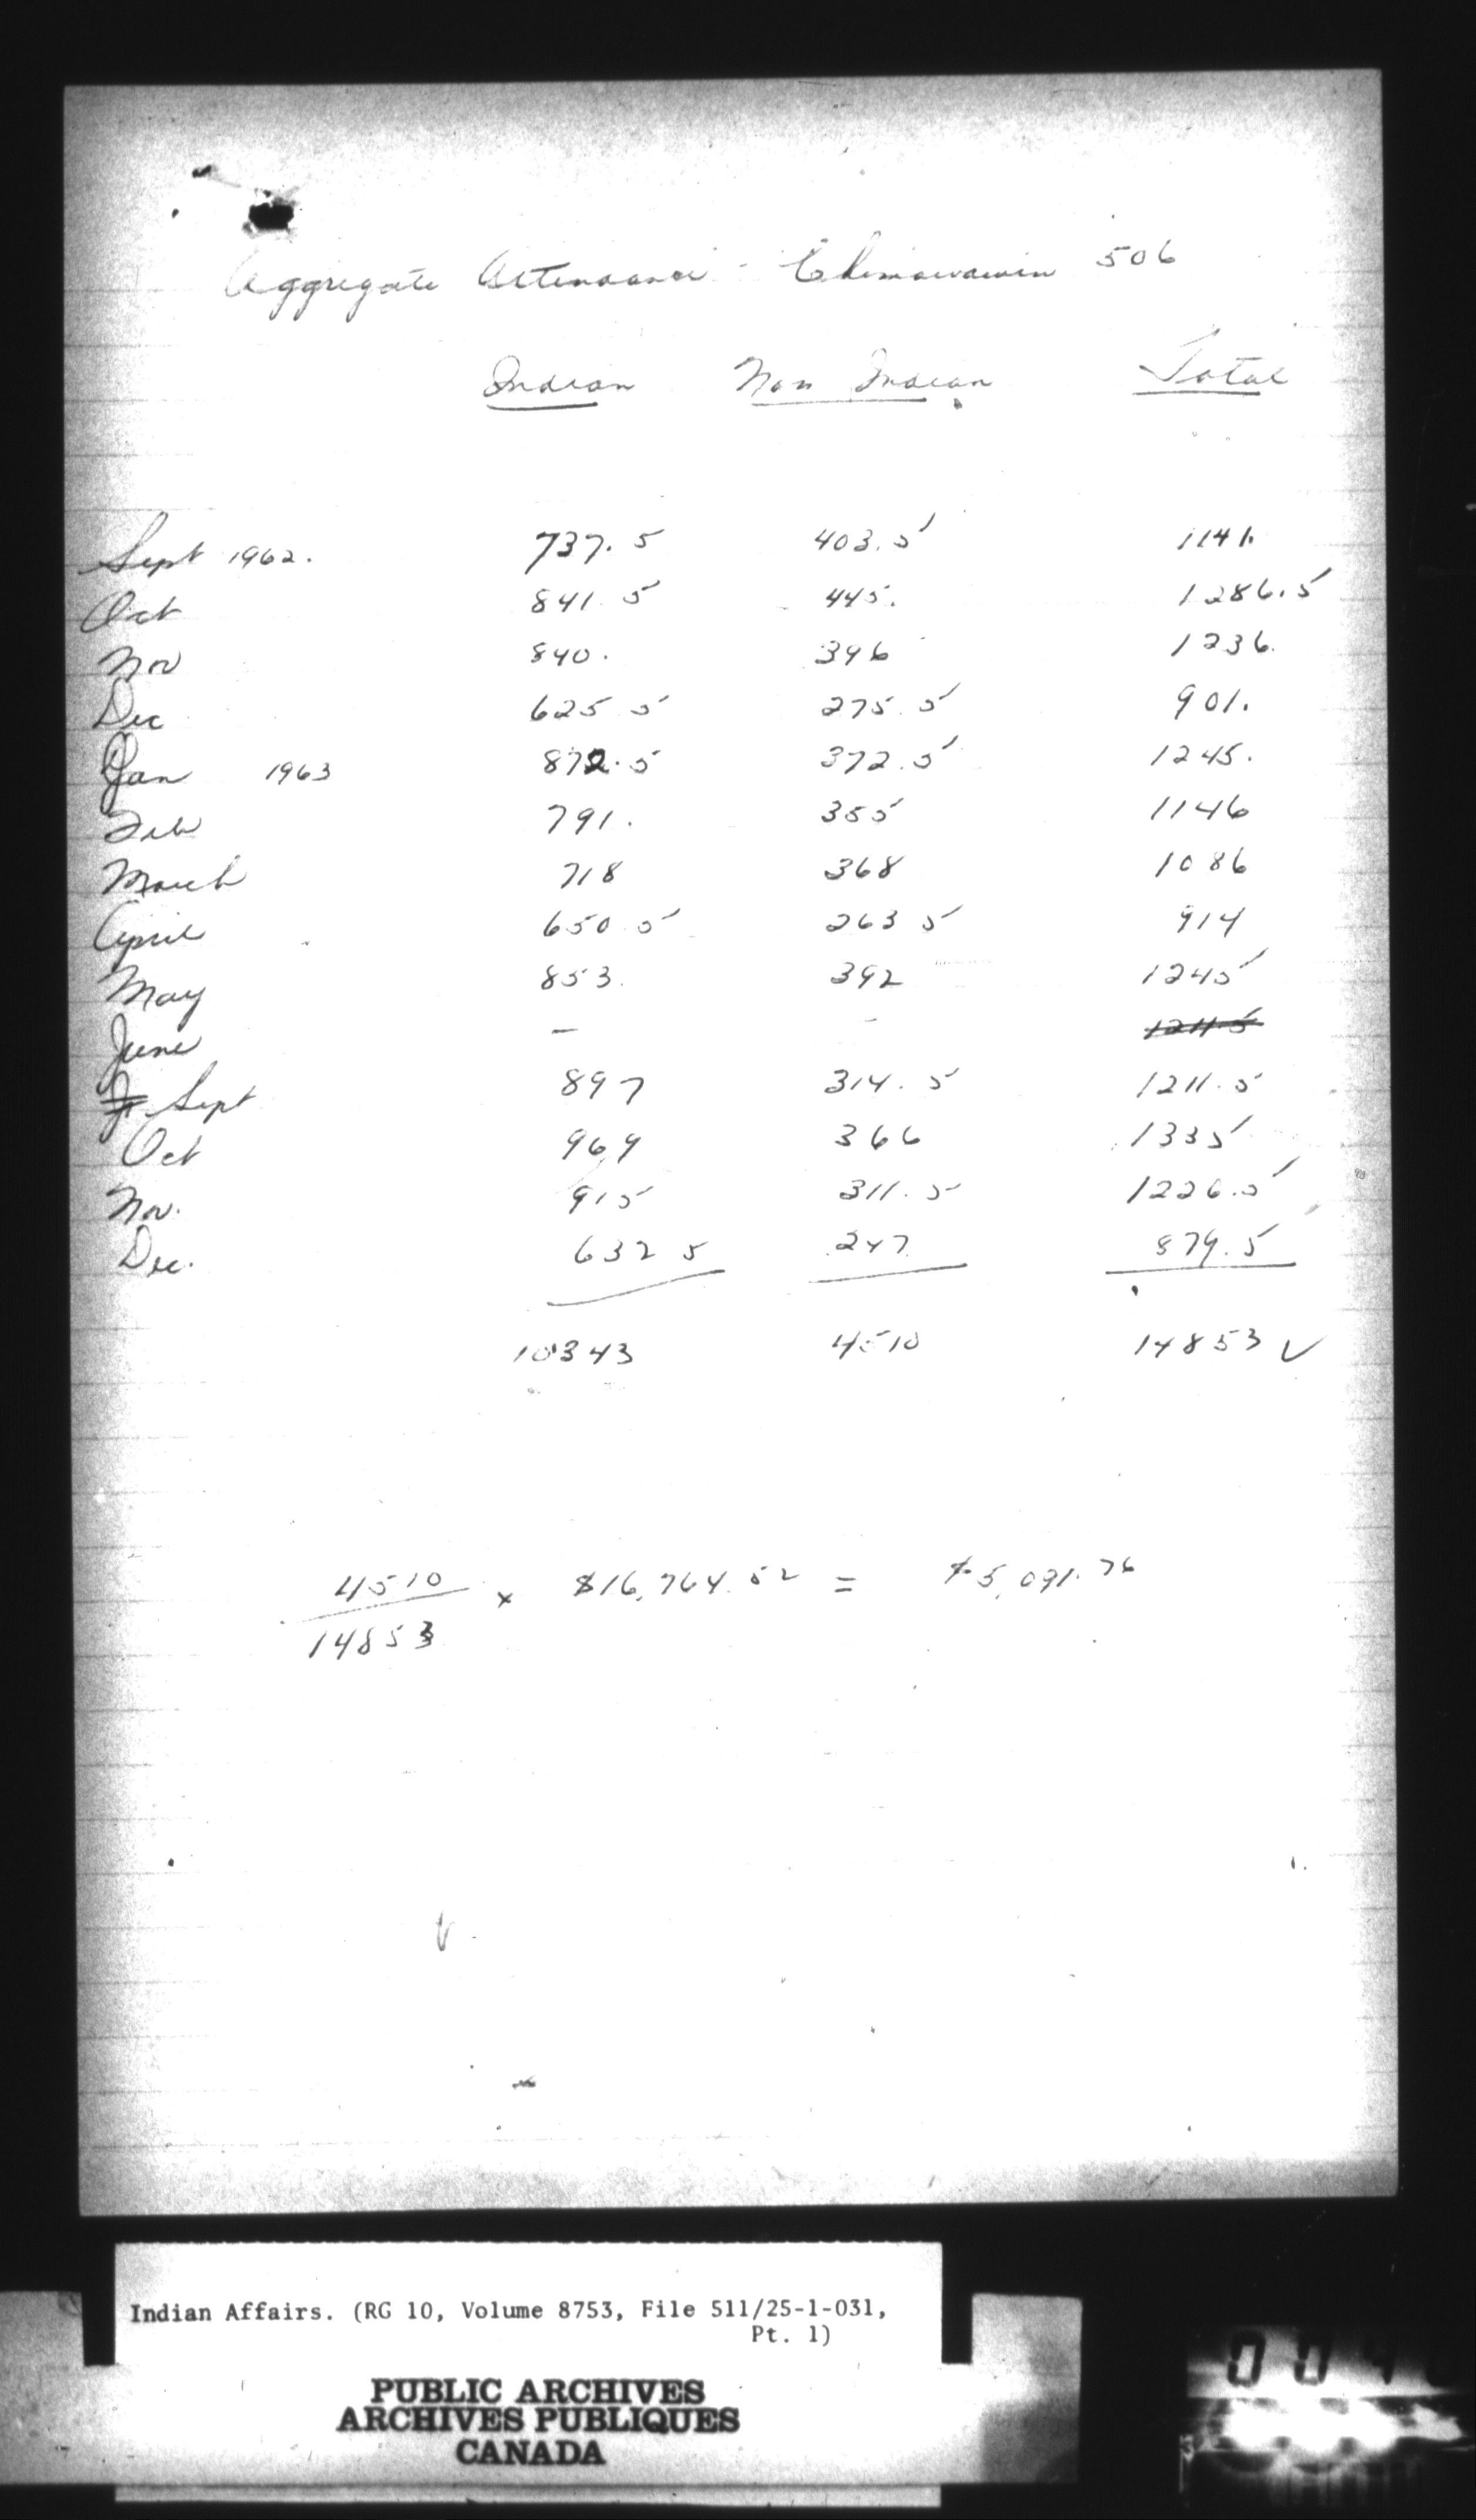 Aggregate Attendance - Chemawawin 506
Indian Non Indian Total
Sept 1962. 737.5 403.5 1141.
Oct 841.5 445. 1286.5
Nov 840. 396 1236.
Dec 625.5 275.5 901.
Jan 1963 872.5 372.5 1245.
Feb 791. 355 1146
March 718 368 1086
April 650.5 263.5 914
May 853. 392 1245
June - - 1211.5
Sept 897 314.5 1211.5
Oct 969 366 1335
Nov. 915 311.5 1226.5
Dec. 632.5 247 879.5
10343 4510 14853 ✓
4510
14853
x $16,764.52 = $5,091.76
Indian Affairs. (RG 10, Volume 8753, File 511/25-1-031,
Pt. 1)
PUBLIC ARCHIVES
ARCHIVES PUBLIQUES
CANADA